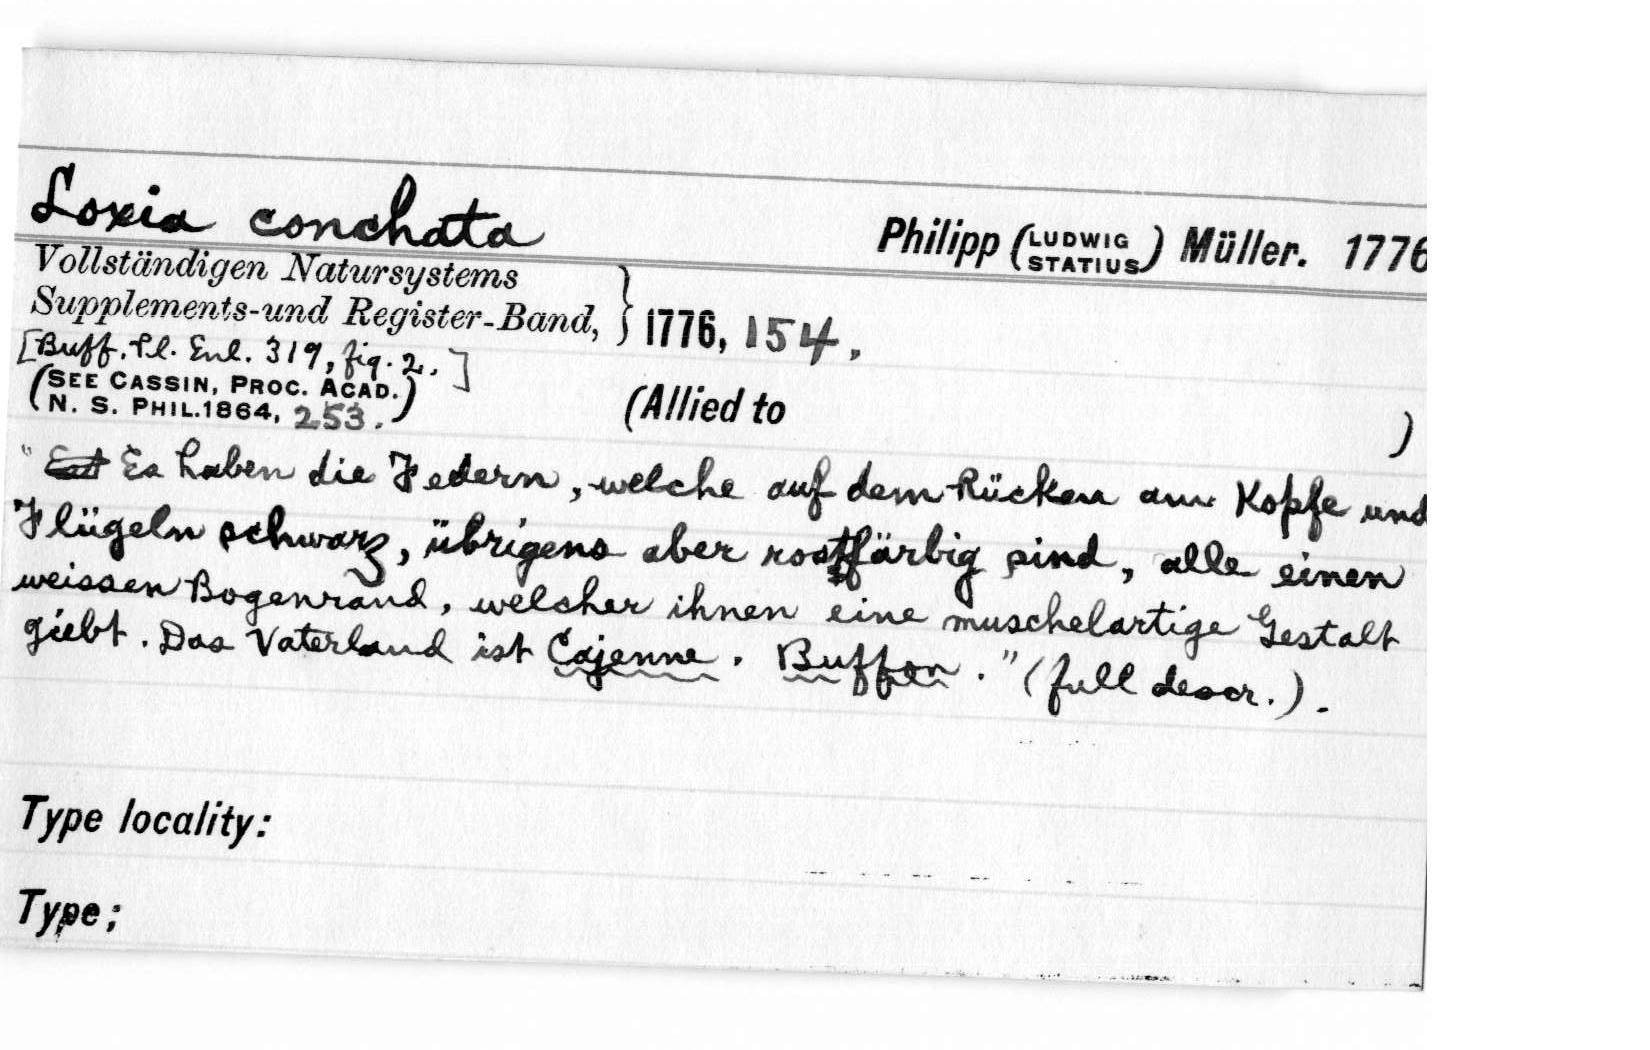 Loxia conchata
Philipp (LUDWIG STATIUS) Müller. 1776
Vollständigen Natursystems
Supplements-und Register-Band, } 1776, 154.
[Buff. Pl. Enl. 319, fig. 2.]
(SEE CASSIN, PROC. ACAD.
N. S. PHIL. 1864, 253.)
(Allied to )
" Es haben die Federn, welche auf dem Rücken am Kopfe und
Flügeln schwarz, übrigens aber rostfärbig sind, alle einen
weissen Bogenrand, welcher ihnen eine muschelartige Gestalt
giebt. Das Vaterland ist Cajenne. Buffon." (full descr.).
Type locality:
Type;